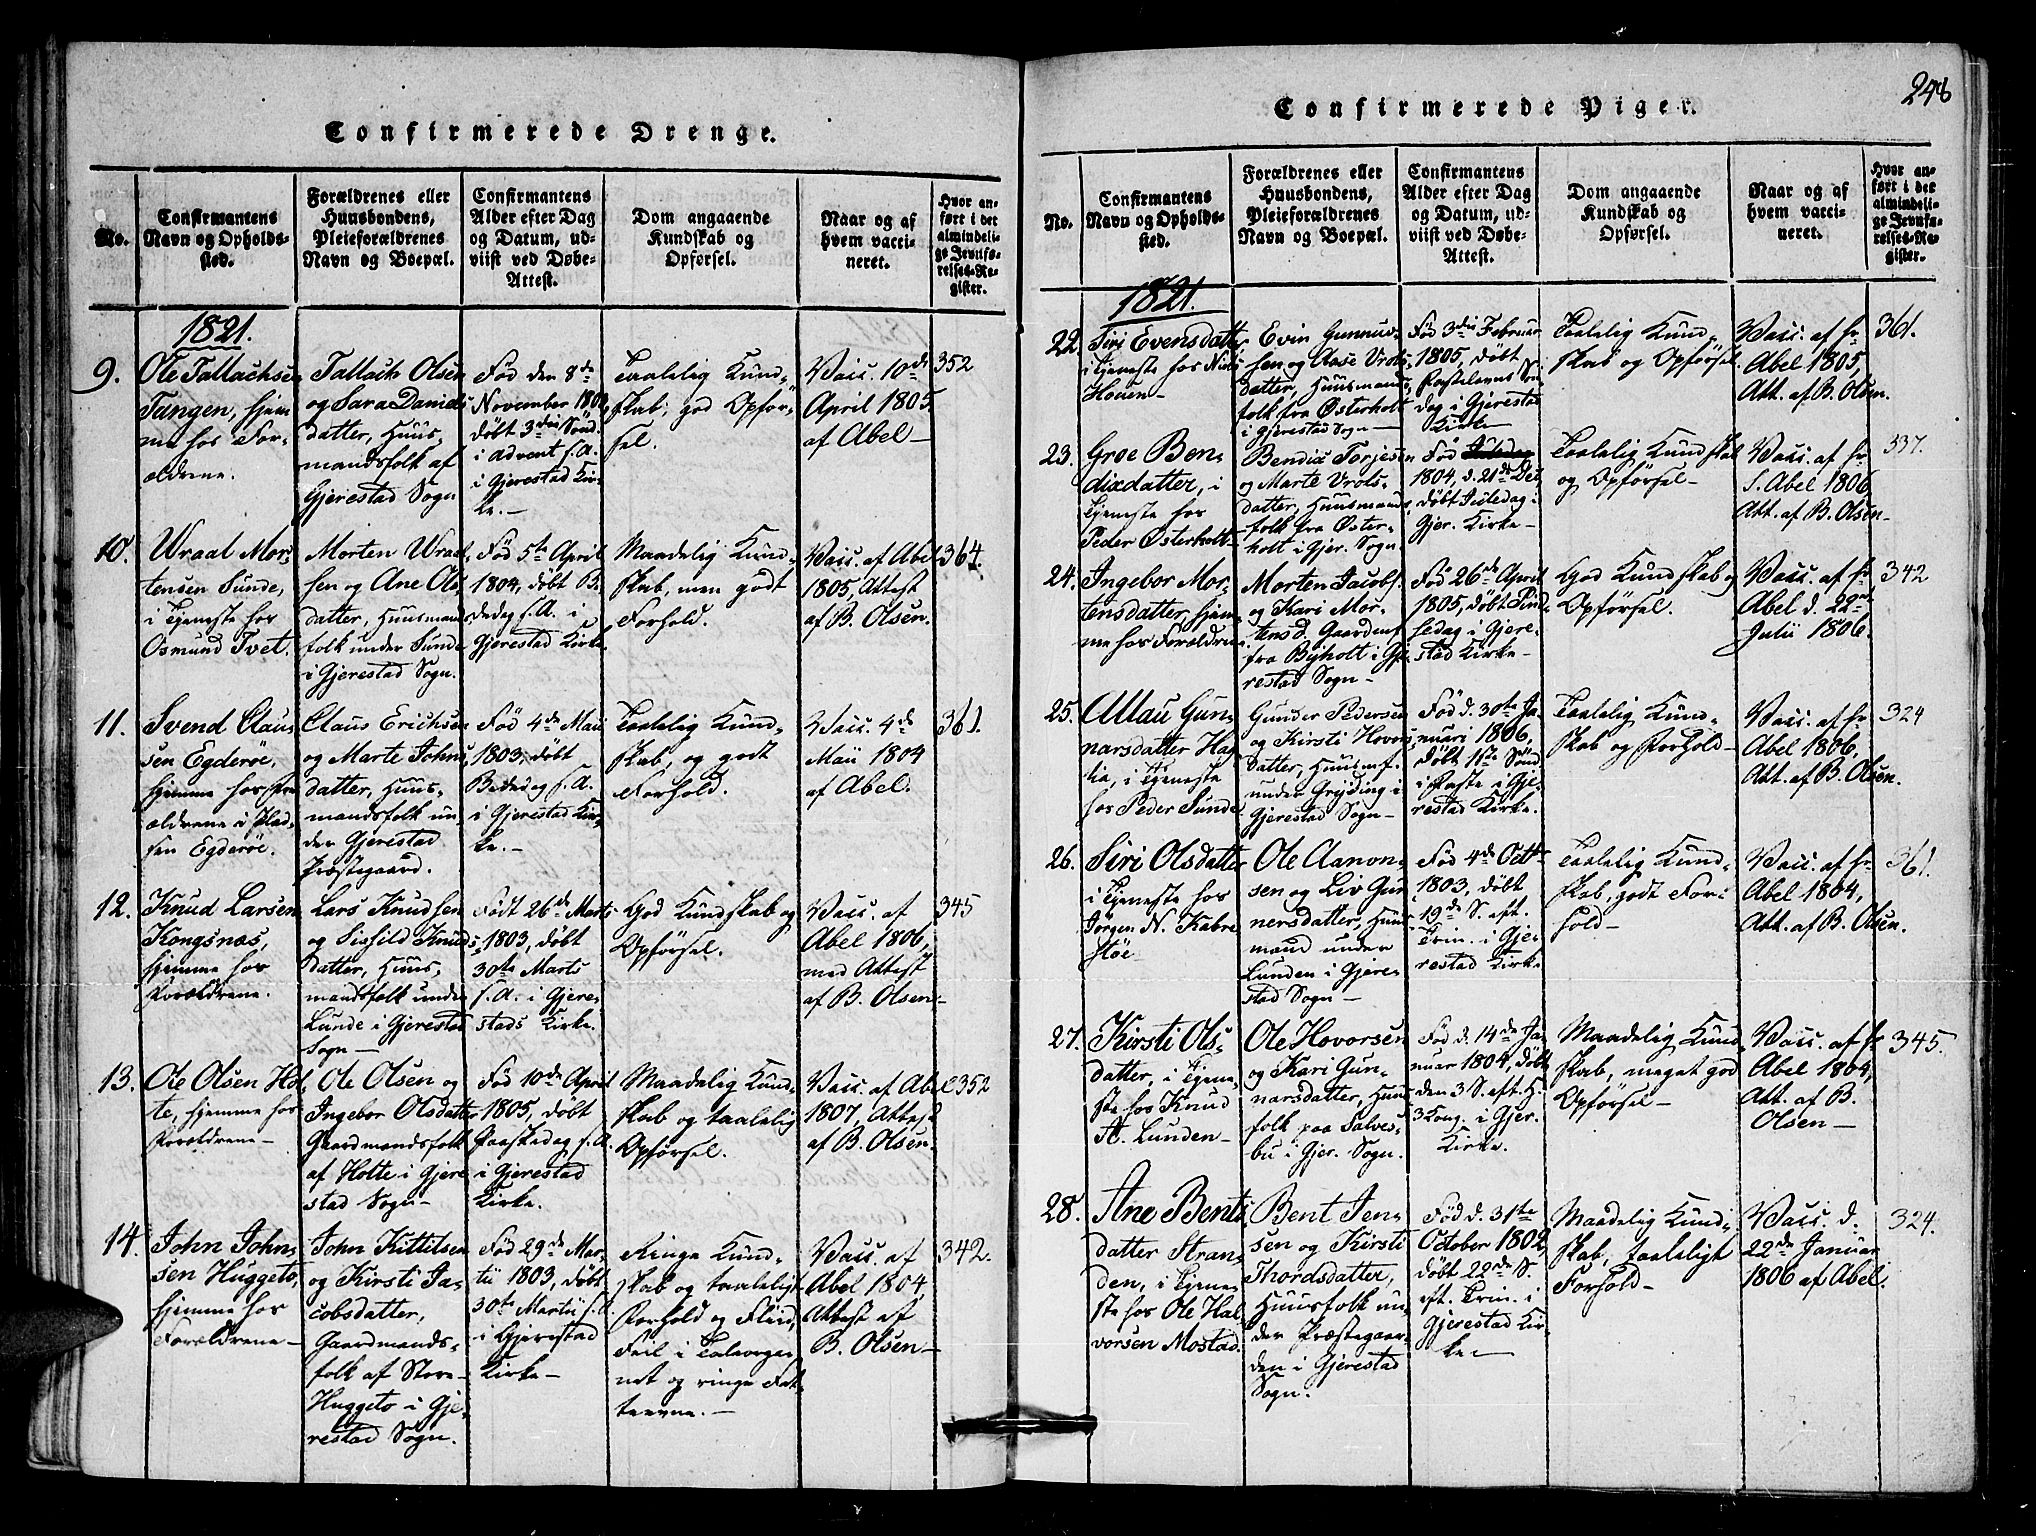 248
Confirmerede Drenge.
No.
Confirmantens
Navn og Opholds-
sted.
Forældrenes eller
Huusbondens,
Pleieforældrenes
Navn og Boepæl.
Confirmantens
Alder efter Dag
og Datum, ud-
viist ved Døbe-
Attest.
Dom angaaende
Kundskab og
Opførsel.
Naar og af
hvem vacci-
neret.
Hvor an-
ført i det
almindeli-
ge Jevnfø-
relses-Re-
gister.
1821.
9.
Ole Tallachsen
Tangen, hjem-
me hos For-
ældrene.
Tallach Olsen
og Sara Daniels
datter, Huus-
mandsfolk af
Gjerestad Sogn
Fød den 8de
November 180
døbt 3die Sønd.
i Advent s. A.
i Gjerestad Kir-
ke.-
Taalelig Kund-
skab, god Opfør-
sel.
Vacc. 10de
April 1805.
af Abel-
352
10.
Wraal Mor-
tensen Sunde,
i Tjeneste hos
Osmund Tvet.
Morten Wraal
sen og Ane Ols
datter, Huusmands
folk under Sunde
i Gjerestad Sogn.
Fød 5te April
1804, døbt B.
dedag s. A. i
Gjerestad Kirke.
Maadelig Kund-
skab, men godt
Forhold.
Vacc. af Abel
1805, Attest
af B. Olsen.
361.
11.
Svend Claus
sen Egderøe,
hjemme hos For
ældrene i Plad-
sen Egderøe.
Claus Erichsen
og Marte Johns
datter, Huus-
mandsfolk un-
der Gjerestad
Præstegaard.
Fød 4de Maii
1803, døbt
Bededag s. A.
i Gjerestad Kir-
ke.-
Taalelig Kund-
skab, og godt
Forhold.
Vacc. 4de
Maii 1804
af Abel.
361.
12.
Knud Larsen
Kongsnæs,
hjemme hos
Forældrene.
Lars Knudsen
og Sisfild Knuds
datter, Huus-
mandsfolk under
Lunde i Gjerestad
Sogn-
Født 26de Marts
1803, døbt
30te Marts
s. A. i Gjere-
stads Kirke.
God Kundskab og
Opførsel.
Vacc. af
Abel 1806,
med Attest
af B. Olsen-
345
13.
Ole Olsen Hol
te, hjemme hos
Forældrene-
Ole Olsen og
Ingebor Olsdatter
Gaardmandsfolk
af Holte i Gjere
stad Sogn-
Fød 10de April
1805, døbt
Paaskedag s. A.
i Gjerestad
Kirke.
Maadelig Kund-
skab og taalelig
Opførsel.
Vacc. af Abel
1807, Attest
af B. Olsen-
352
14.
John John-
sen Huggeto,
hjemme hos
Forældrene-
John Kittilsen
og Kirsti Ja-
cobsdatter,
Gaardmands-
folk af Store-
Huggeto i Gje-
restad Sogn.
Fød 29de Mar-
tii 1803, døbt
30te Martii s. A.
i Gjerestad
Kirke-
Ringe Kund-
skab og taaleligt
Forhold og Fliid,
Feil i Taleorga-
net og ringe Fat-
teevne.-
Vacc. af
Abel 1804,
Attest af
B. Olsen-
342.
Confirmerede Piger.
No.
Confirmantens
Navn og Opholds-
sted.
Forældrenes eller
Huusbondens,
Pleieforældrenes
Navn og Boepæl.
Confirmantens
Alder efter Dag
og Datum, ud-
viist ved Døbe-
Attest.
Dom angaaende
Kundskab og
Opførsel.
Naar og af
hvem vacci-
neret.
Hvor an-
ført i det
almindeli-
ge Jevnfø-
relses-Re-
gister.
1821.
22.
Siri Evensdatter
i Tjeneste hos Niels
Houen-
Evin Gunnuld
sen og Aase Vrols-
datter, Huusmands
folk fra Østerholt
i Gjerestad Sogn-
Fød 3die Februar
1805, døbt
Fastelavns Sn-
dag i Gjerestad
Kirke-
Taalelig Kund-
skab og Opførsel.
Vacc. af hr
Abel 1805,
Att. af B. Olsen.
361.
23.
Groe Ben-
dixdatter, i
Tjeneste hos
Peder Østerholt-
Bendix Torjesen
og Marte Vrols-
datter, Huusmands
folk fra Øster-
holt i Gjer. Sogn.
Fød Juledag
1804, d. 21de Dec,
døbt Juledag i
Gjer. Kirke-
Taalelig Kundskab
og Opførsel-
Vacc. af hr
S. Abel 1806
Att. af B. Olsen-
337.
24.
Ingebor Mor-
tensdatter, hjem-
me hos Forældrene
Morten Jacobs.
og Kari Mor-
tensd. Gaardmf.
fra Bijholt i Gje
restad Sogn-
Fød 26de April
1805, døbt Pind-
sedag i Gjere-
stad Kirke-
God Kundskab og
Opførsel.
Vacc. af hr
Abel d. 22de
Julii 1806.
342
25.
Allau Gun-
narsdatter Hag
lia, i Tjeneste
hos Peder Sunde
Gunder Pedersen
og Kirsti Hovors
datter, Huusmf.
under Grytling i
Gjerestad Sogn-
Fød d. 30te Ja-
nuari 1806,
døbt 1ste Sønd
i Faste i Gje-
restad Kirke.
Taalelig Kund-
skab og Forhold-
Vacc. af hr
Abel 1806,
Att. af B. Olsen.
324
26.
Siri Olsdatter
i Tjeneste hos
Jørgen N. Kabre
støe
Ole Aanon-
sen og Liv Gun
nersdatter, Huus
mand under
Lunden i Gjere-
stad Sogn-
Fød 4de Octr
1803, døbt
19de S. eft.
Trin. i Gje-
restad Kirke
Taalelig Kund-
skab, godt For-
hold-
Vacc. af hr
Abel 1804,
Att. af B. Olsen.
361.
27.
Kirsti Ols-
datter, i Tjene-
ste hos Knud
A. Lunden-
Ole Hovorsen
og Kari Gun-
narsdatter, Huus
folk paa Salves-
bu i Gjer. Sogn.
Fød d. 14de Ja-
nuar 1804, døbt
den 3 S. eft. H.
3 Kong. i Gjer.
Kirke.
Maadelig Kund-
skab, meget god
Opførsel-
Vacc. af hr
Abel 1804,
Att. af B.
Olsen-
345.
28.
Ane Bents
datter Stran-
den, i Tjene-
ste hos Ole Hal-
vorsen Mostad.
Bent Jen-
sen og Kirsti
Thordsdatter,
Huusfolk un-
der Præstegaar-
den i Gjerestad
Sogn.
Fød d. 31te
October 1802
døbt 22de S.
eft. Trin. i
Gjerestad Kir-
ke-
Maadelig Kund-
skab, taaleligt
Forhold-
Vacc. d.
22de Januar
1806 af Abel.
324.